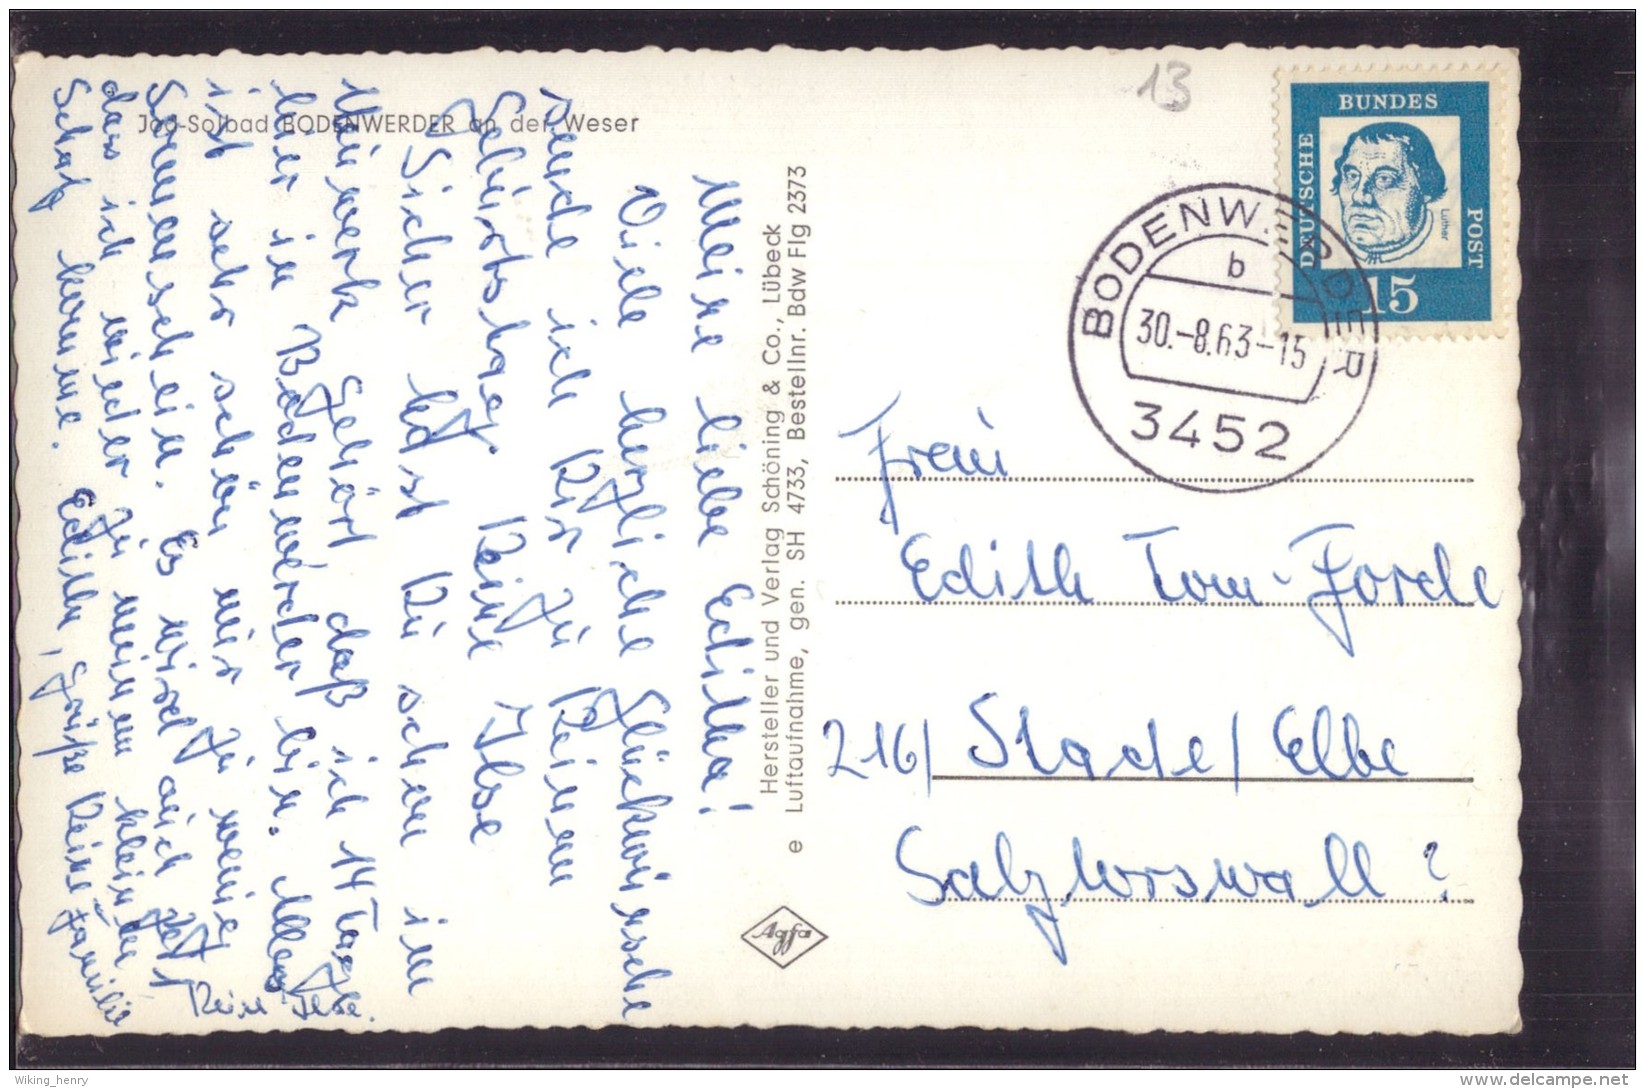 Jod-Solbad BODENWERDER an der Weser
13
BUNDES
DEUTSCHE
POST
Luther
15
BODENWERDER
b
30.-8.63-15
3452
Meine liebe Editha!
Viele herzliche Glückwünsche
sende ich Dir zu Deinem
Geburtstag. Deine Ilse
Sicher hast Du schon im
Mühwerk gehört daß ich 14 Tage
hier in Bodenwerder bin. Alles
ist sehr schön nur zu wenig
Sonnenschein. Es wird auch Zeit
das ich wieder zu meinem kleinen
Schatz komme. Edith, grüße Deine Familie
Deine Ilse.
Hersteller und Verlag Schöning & Co., Lübeck
e Luftaufnahme, gen. SH 4733, Bestellnr. Bdw Flg 2373
Agfa
Frau
Edith Tom-Forde
216/ Stade/Elbe
Salztorswall ?
Wiking_henry
delcampe.net